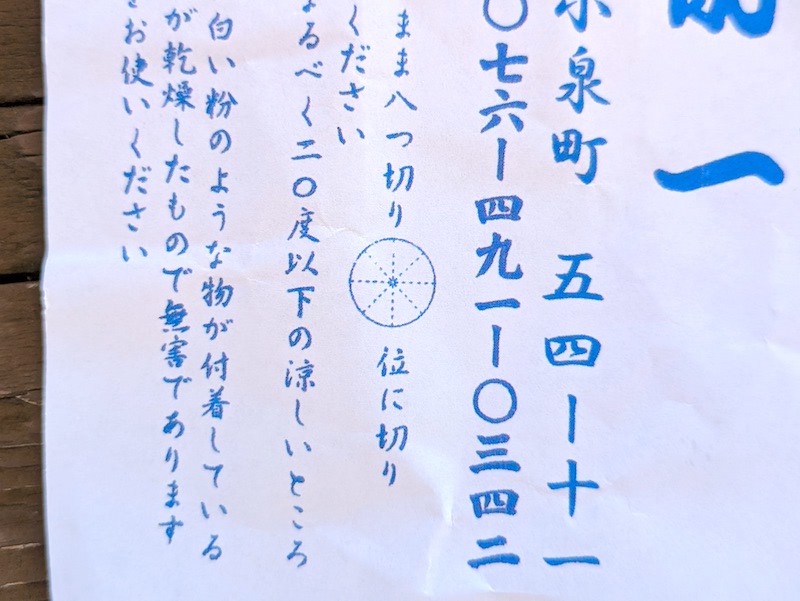 一
小泉町 五四ー十一
〇七六ー四九一ー〇三四二
まま八つ切り 位に切り
ください
なるべく二〇度以下の涼しいところ
白い粉のような物が付着している
が乾燥したもので無害であります
お使いください